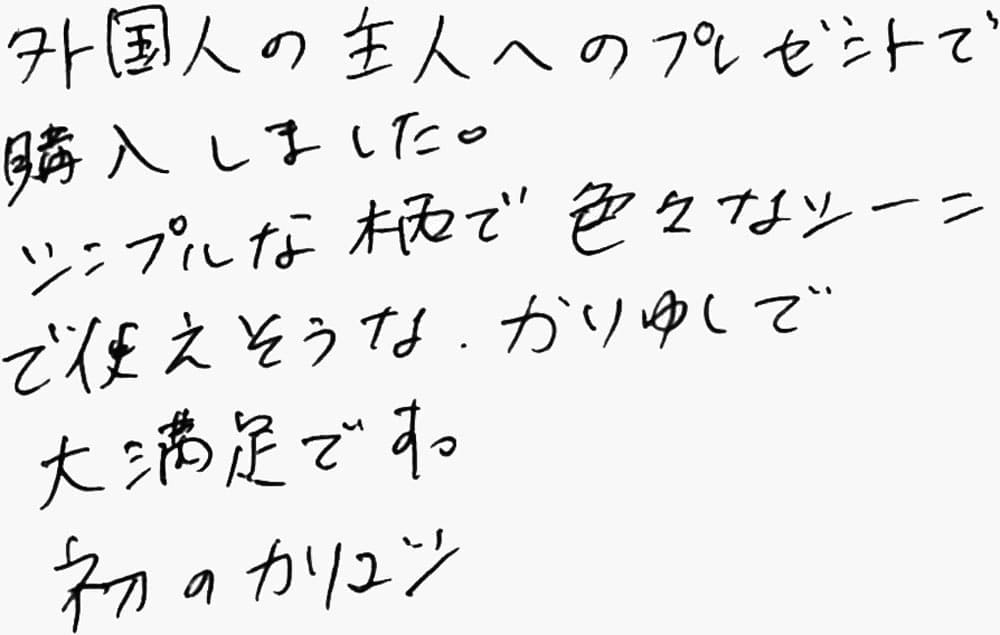 外国人の主人へのプレゼントで
購入しました。
シンプルな柄で色々なシーン
で使えそうな.かりゆしで
大満足です。
初のカリユシ